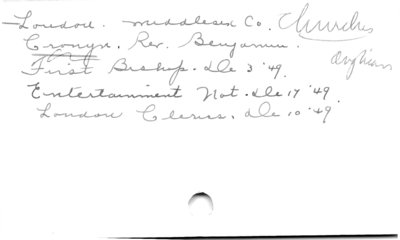 London. Middlesex Co. Churches
Cronyn. Rev. Benjamin. Anglican
First Bishop. De 3 '49.
Entertainment Not. De 17 '49.
London Clerus. De 10 '49.